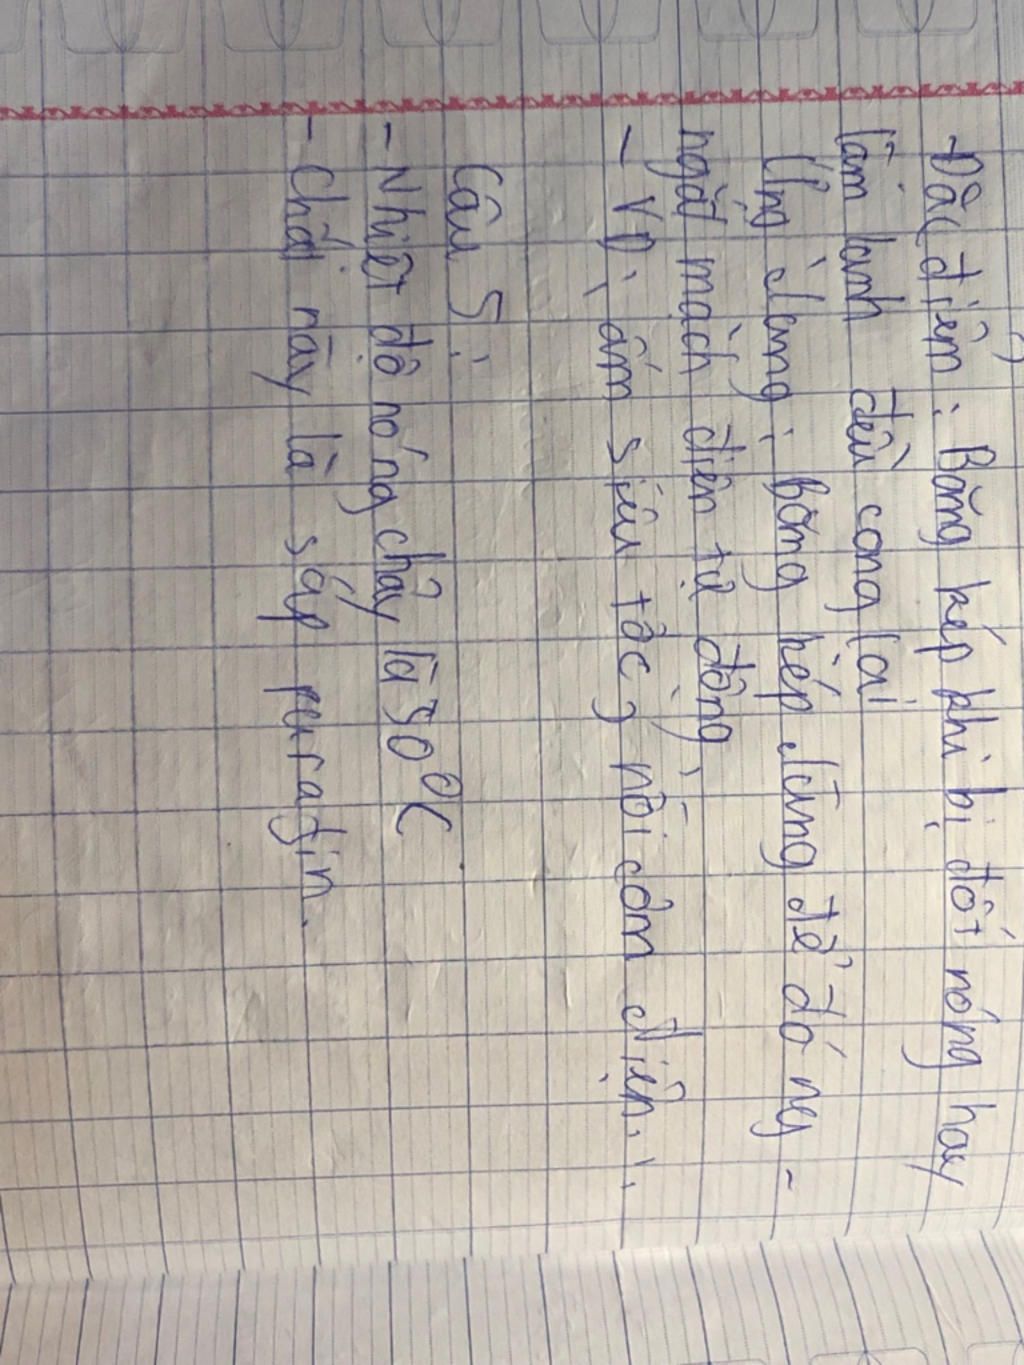 - Đặc điểm: Băng kép khi bị đốt nóng hay
làm lạnh đều cong lại
Ứng dụng: Băng kép dùng để đó ng -
ngắt mạch điện tự động
- VD: ấm siêu tốc, nồi cơm điện...
Câu 5:
- Nhiệt độ nóng chảy là 50°C
- Chất này là sáp purafin.